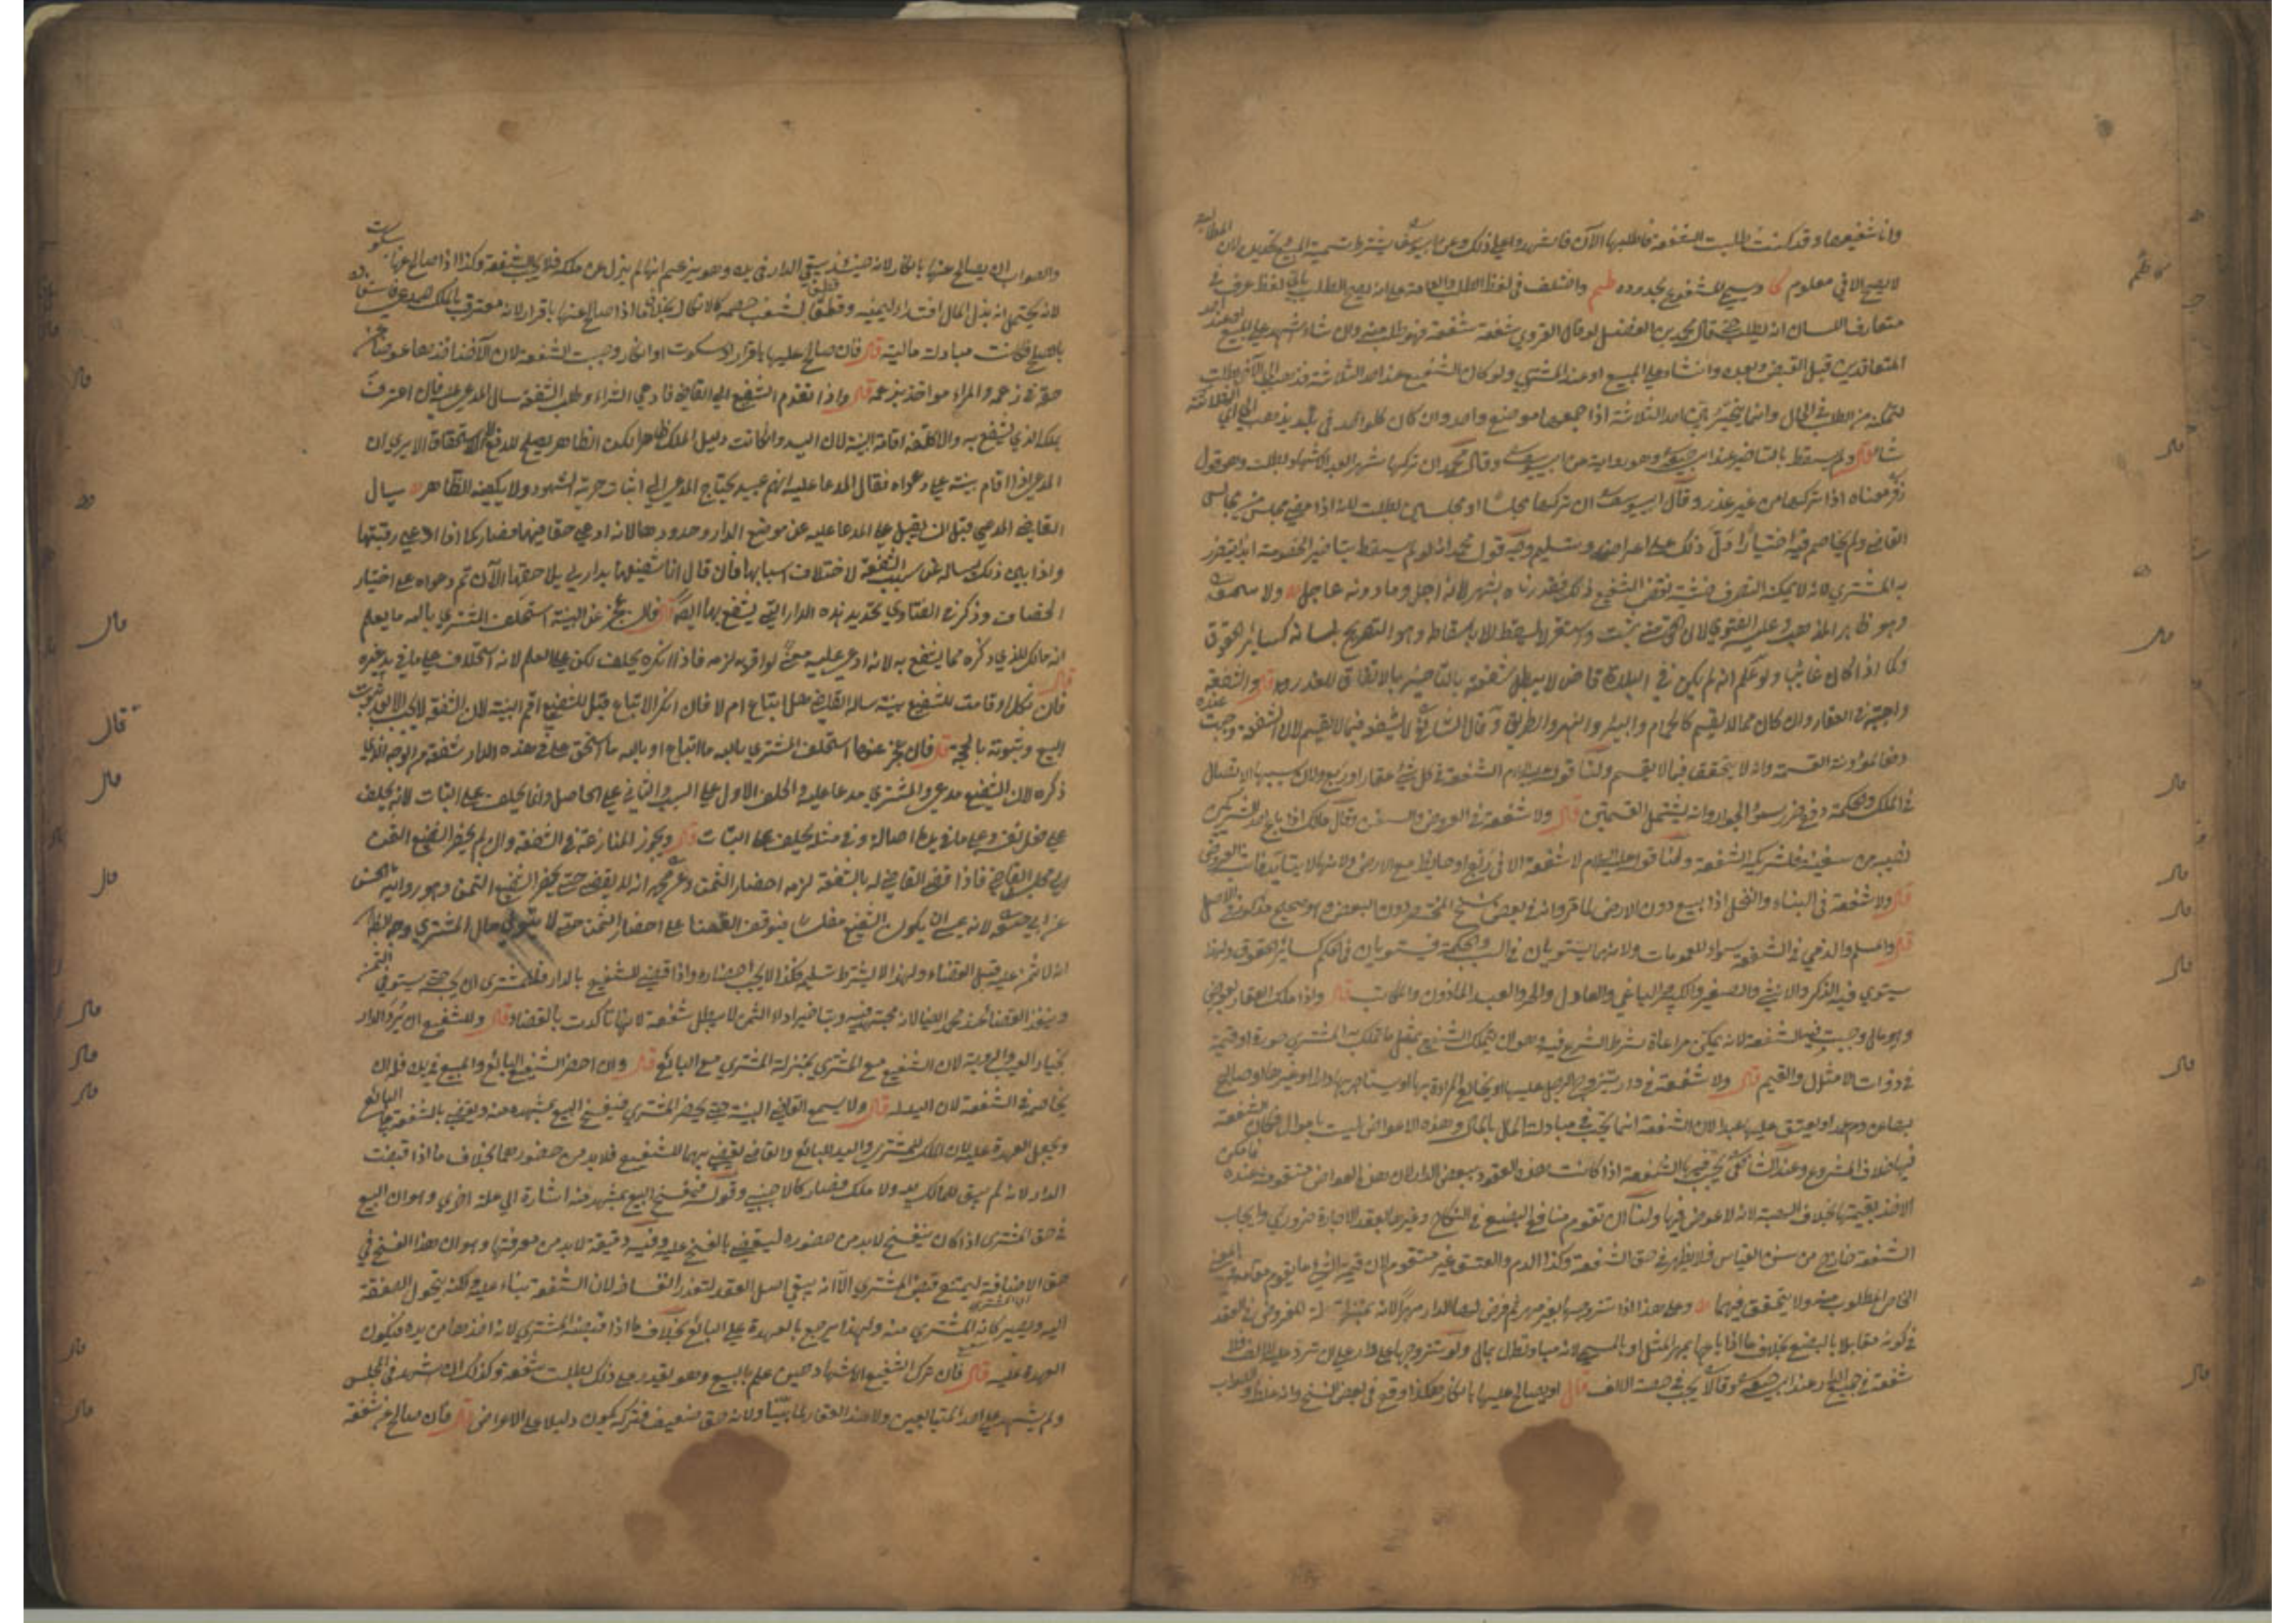 وانا شفيعها وقد كنت طلبت الشفعة فاطلبها الآن فاشهدوا علي ذلك وعن ابي يوسف يشترط تسمية المبيع وتحديده لان المطالبة
لا يصح الا في معلوم كا وسيع للشفيع بحدوده واختلف في لفظ الطلب والعامة علي انه يصح الطلب باي لفظ عرف في
متعارف اللسان انه لطلب قال محمد بن الفضل لو قال القروي شفعة شفعة فهو طلب منه وان شاء اشهد علي المبيع
المتعاقدين قبل القبض وبعده وان شاء علي المبيع او عند المشتري ولو كان الشفيع عند احد الثلاثة فذهب الي الآخر بطلت
لتمكنه من الطلب في الحال وانما يتخير بين احد الثلاثة اذا جمعها موضع واحد وان كان كل واحد في بلد يذهب الي اي الثلاثة
شا قال ولم يسقط بالتاخير عند ابي حنيفة وهو رواية عن ابي يوسف وقال محمد ان تركها شهرا بعد الاشهاد بطلت وهو قول
زفر معناه اذا تركها من غير عذر وقال ابو يوسف ان تركها مجلسا او مجلسين بطلت لانه اذا مضي مجلس من مجالس
القاضي ولم يخاصم فيه اختيارا دل ذلك علي اعراضه وتسليمه وجه قول محمد انه لو لم يسقط بتاخير الخصومة ابدا يتضرر
به المشتري لانه لا يمكنه التصرف خشية نقض الشفيع ذلك فقدرناه بشهر لانه اجل وما دونه عاجل
وهو ظاهر المذهب وعليه الفتوي لان الحق متي ثبت واستقر لا يسقط الا باسقاط وهو التصريح بلسانه كسائر الحقوق
وكما اذا كان غائبا ولو علم انه لم يكن في البلدة قاض لا يبطل شفعته بالتاخير بالاتفاق للعذر قال والشفعة
واجبة في العقار وان كان مما لا يقسم كالحمام والبئر والنهر والطريق وقال الشافعي لا شفعة فيما لا يقسم لان الشفعة وجبت عنده
دفعا لمؤونة القسمة وانه لا يتحقق فيما لا يقسم ولنا قوله الشفعة في كل شيء عقار او ربع ولان سببها الاتصال
في الملك والحكمة دفع ضرر سوء الجوار وانه يشتمل القسمين قال ولا شفعة في العروض والسفن وقال مالك اذا باع احد الشريكين
نصيبه من سفينة فلشريكه الشفعة ولنا قوله عليه السلام لا شفعة الا في ربع او حائط مع الارض ولانها لا يتابد فات العروض
قال ولا شفعة في البناء والنخل اذا بيع دون الارض لما قر وانه في بعض نسخ المختصر دون البعض وهو صحيح مذكور في الاصل
قال والمسلم والذمي في الشفعة سواء للعمومات ولانهما يستويان في السبب والحكمة فيستويان في الحكم كسائر الحقوق ولهذا
يستوي فيه الذكر والانثي والصغير والكبير والباغي والعادل والحر والعبد الماذون والمكاتب قال واذا ملك العقار بعوض
وهو مال وجبت فيه الشفعة لانه يمكن مراعاة شرط الشرع فيه وهو ان يتملك الشفيع بمثل ما تملك به المشتري صورة او قيمة
في ذوات الامثال والقيم قال ولا شفعة في دار يتزوج الرجل عليها او يخالع المراة بها او يستاجر بها دارا او غيرها او يصالح
بها عن دم عمد او يعتق عليها عبدا لان الشفعة انما تجب في مبادلة المال بالمال وهذه الاعواض ليست باموال فكان الشفعة
فيها خلاف المشروع وعند الشافعي تجب فيها الشفعة اذا كانت هذه العقود ببعض الدار لان هذه الاعواض متقومة عنده فامكن
الاخذ بقيمتها بخلاف الهبة لانه لا عوض فيها ولنا ان تقوم منافع البضع في النكاح وغيرها بعقد الاجارة ضروري وايجاب
الشفعة خارج عن سنن القياس فلا يظهر في حق الشفعة وكذا الدم والعتق غير متقوم لان قيمة الشيء ما يقوم مقامه في المعني
الخاص المطلوب منه ولا يتحقق فيهما وعلي هذا اذا تزوجها بغير مهر ثم فرض لها الدار مهرا لانه بمنزلة المفروض في العقد
في كونه مقابلا بالبضع بخلاف ما اذا باعها بمهر المثل او بالمسمي لانه مبادلة مال بمال ولو تزوجها علي دار علي ان ترد عليه الف فلا
شفعة في جميع الدار عند ابي حنيفة وقالا يجب في حصة الالف قال او يصالح عليها بانكار هكذا وقع في بعض النسخ وانه غلط والصواب
والصواب ان يصالح عنها بانكار لانه حينئذ يبقي الدار في يده وهو يزعم انها لم يزل عن ملكه فلا يجب الشفعة وكذا اذا صالح عنها بسكوت
لانه يحتمل انه بذل المال افتداء ليمينه وقطعا لشغب خصمه كالانكار بخلاف ما اذا صالح عنها باقرار لانه معترف بالملك
بالصلح فكانت مبادلة مالية قال فان صالح عليها باقرار او سكوت او انكار وجبت الشفعة لان الآخذ اخذها عوضا عن
حقه في زعمه والمراء مواخذ بزعمه قال واذا تقدم الشفيع الي القاضي فادعي الشراء وطلب الشفعة سال المدعي عليه فان اعترف
بملكه الذي يشفع به والا كلفه اقامة البينة لان اليد وان كانت دليل الملك ظاهرا لكن الظاهر يصلح للدفع لا للاستحقاق الا يري ان
المدعي اذا اقام بينة علي دعواه فقال المدعا عليه انهم عبيد يحتاج المدعي الي اثبات حرية الشهود ولا يكفيه الظاهر سال
القاضي المدعي قبل ان يقبل علي المدعا عليه عن موضع الدار وحدودها لانه ادعي حقا فيها فصار كما اذا ادعي رقبتها
واذا بين ذلك يساله عن سبب الشفعة لاختلاف اسبابها فان قال انا شفيعها بدار لي يلاصقها الآن تم دعواه علي اختيار
الخصاف وذكر في الفتاوي تحديد هذه الدار التي يشفع بها ايضا قال فان عجز عن البينة استحلف المشتري بالله ما يعلم
انه مالك للذي ذكره مما يشفع به لانه ادعي عليه معني لو اقر به لزمه فاذا انكره يحلف لكن علي العلم لانه استحلاف علي ما في يد غيره
فان نكل او قامت للشفيع بينة ساله القاضي هل ابتاع ام لا فان انكر الابتياع قيل للشفيع اقم البينة لان الشفعة لا يجب الا بعد ثبوت
البيع وثبوته بالحجة قال فان عجز عنها استحلف المشتري بالله ما ابتاع او بالله ما استحق علي في هذه الدار شفعة من الوجه الذي
ذكره لان الشفيع مدعي والمشتري مدعا عليه والحلف الاول علي السبب والثاني علي الحاصل وانما يحلف علي البتات لانه يحلف
علي فعل نفسه وعلي ما في يده اصالة وفي مثله يحلف علي البتات قال ويجوز المنازعة في الشفعة وان لم يحضر الشفيع الثمن
الي مجلس القاضي فاذا قضي القاضي له بالشفعة لزمه احضار الثمن وعن محمد انه لا يقضي حتي يحضر الشفيع الثمن وهو رواية الحسن
عن ابي حنيفة لانه عسي ان يكون الشفيع مفلسا فيتوقف القضا علي احضار الثمن حتي لا يتوي مال المشتري وجه الظاهر
انه لا ثمن عليه قبل القضاء ولهذا لا يشترط تسليمه فكذا لا يجب احضاره واذا قضي للشفيع بالدار فللمشتري ان يحبسها حتي يستوفي الثمن
وينفذ القضا عند محمد ايضا لانه مجتهد فيه وبتاخير اداء الثمن لا يبطل شفعته لانها تاكدت بالقضا قال وللشفيع ان يرد الدار
بخيار العيب والروية لان الشفيع مع المشتري بمنزلة المشتري مع البائع قال وان احضر الشفيع البائع والمبيع في يده فله ان
يخاصمه في الشفعة لان اليد له قال ولا يسمع القاضي البينة حتي يحضر المشتري فيفسخ البيع بمشهد منه ويقضي بالشفعة علي البائع
ويجعل العهدة عليه لان الملك للمشتري واليد للبائع والقاضي يقضي بهما للشفيع فلا بد من حضورهما بخلاف ما اذا قبضت
الدار لانه لم يبق للمالك يد ولا ملك فصار كالاجنبي وقوله فيفسخ البيع بمشهد منه اشارة الي علة اخري وهو ان البيع
في حق المشتري اذا كان ينفسخ لا بد من حضوره ليقضي بالفسخ عليه وفيه دقيقة لا بد من معرفتها وهو ان هذا الفسخ في
حق الاضافة ليمتنع قبض المشتري الا انه يبقي اصل العقد لتعذر انفساخه لان الشفعة بناء عليه ولكنه يتحول الصفقة
اليه ويصير كانه المشتري منه ولهذا يرجع بالعهدة علي البائع بخلاف ما اذا قبضه المشتري لانه اخذها من يده فيكون
العهدة عليه قال فان ترك الشفيع الاشهاد حين علم بالبيع وهو يقدر علي ذلك بطلت شفعته وكذلك ان اشهد في المجلس
ولم يشهد علي احد المتبايعين ولا عند العقار لما بينا ولانه حق ضعيف فتركه يكون دليلا علي الاعراض قال فان صالح عن شفعته